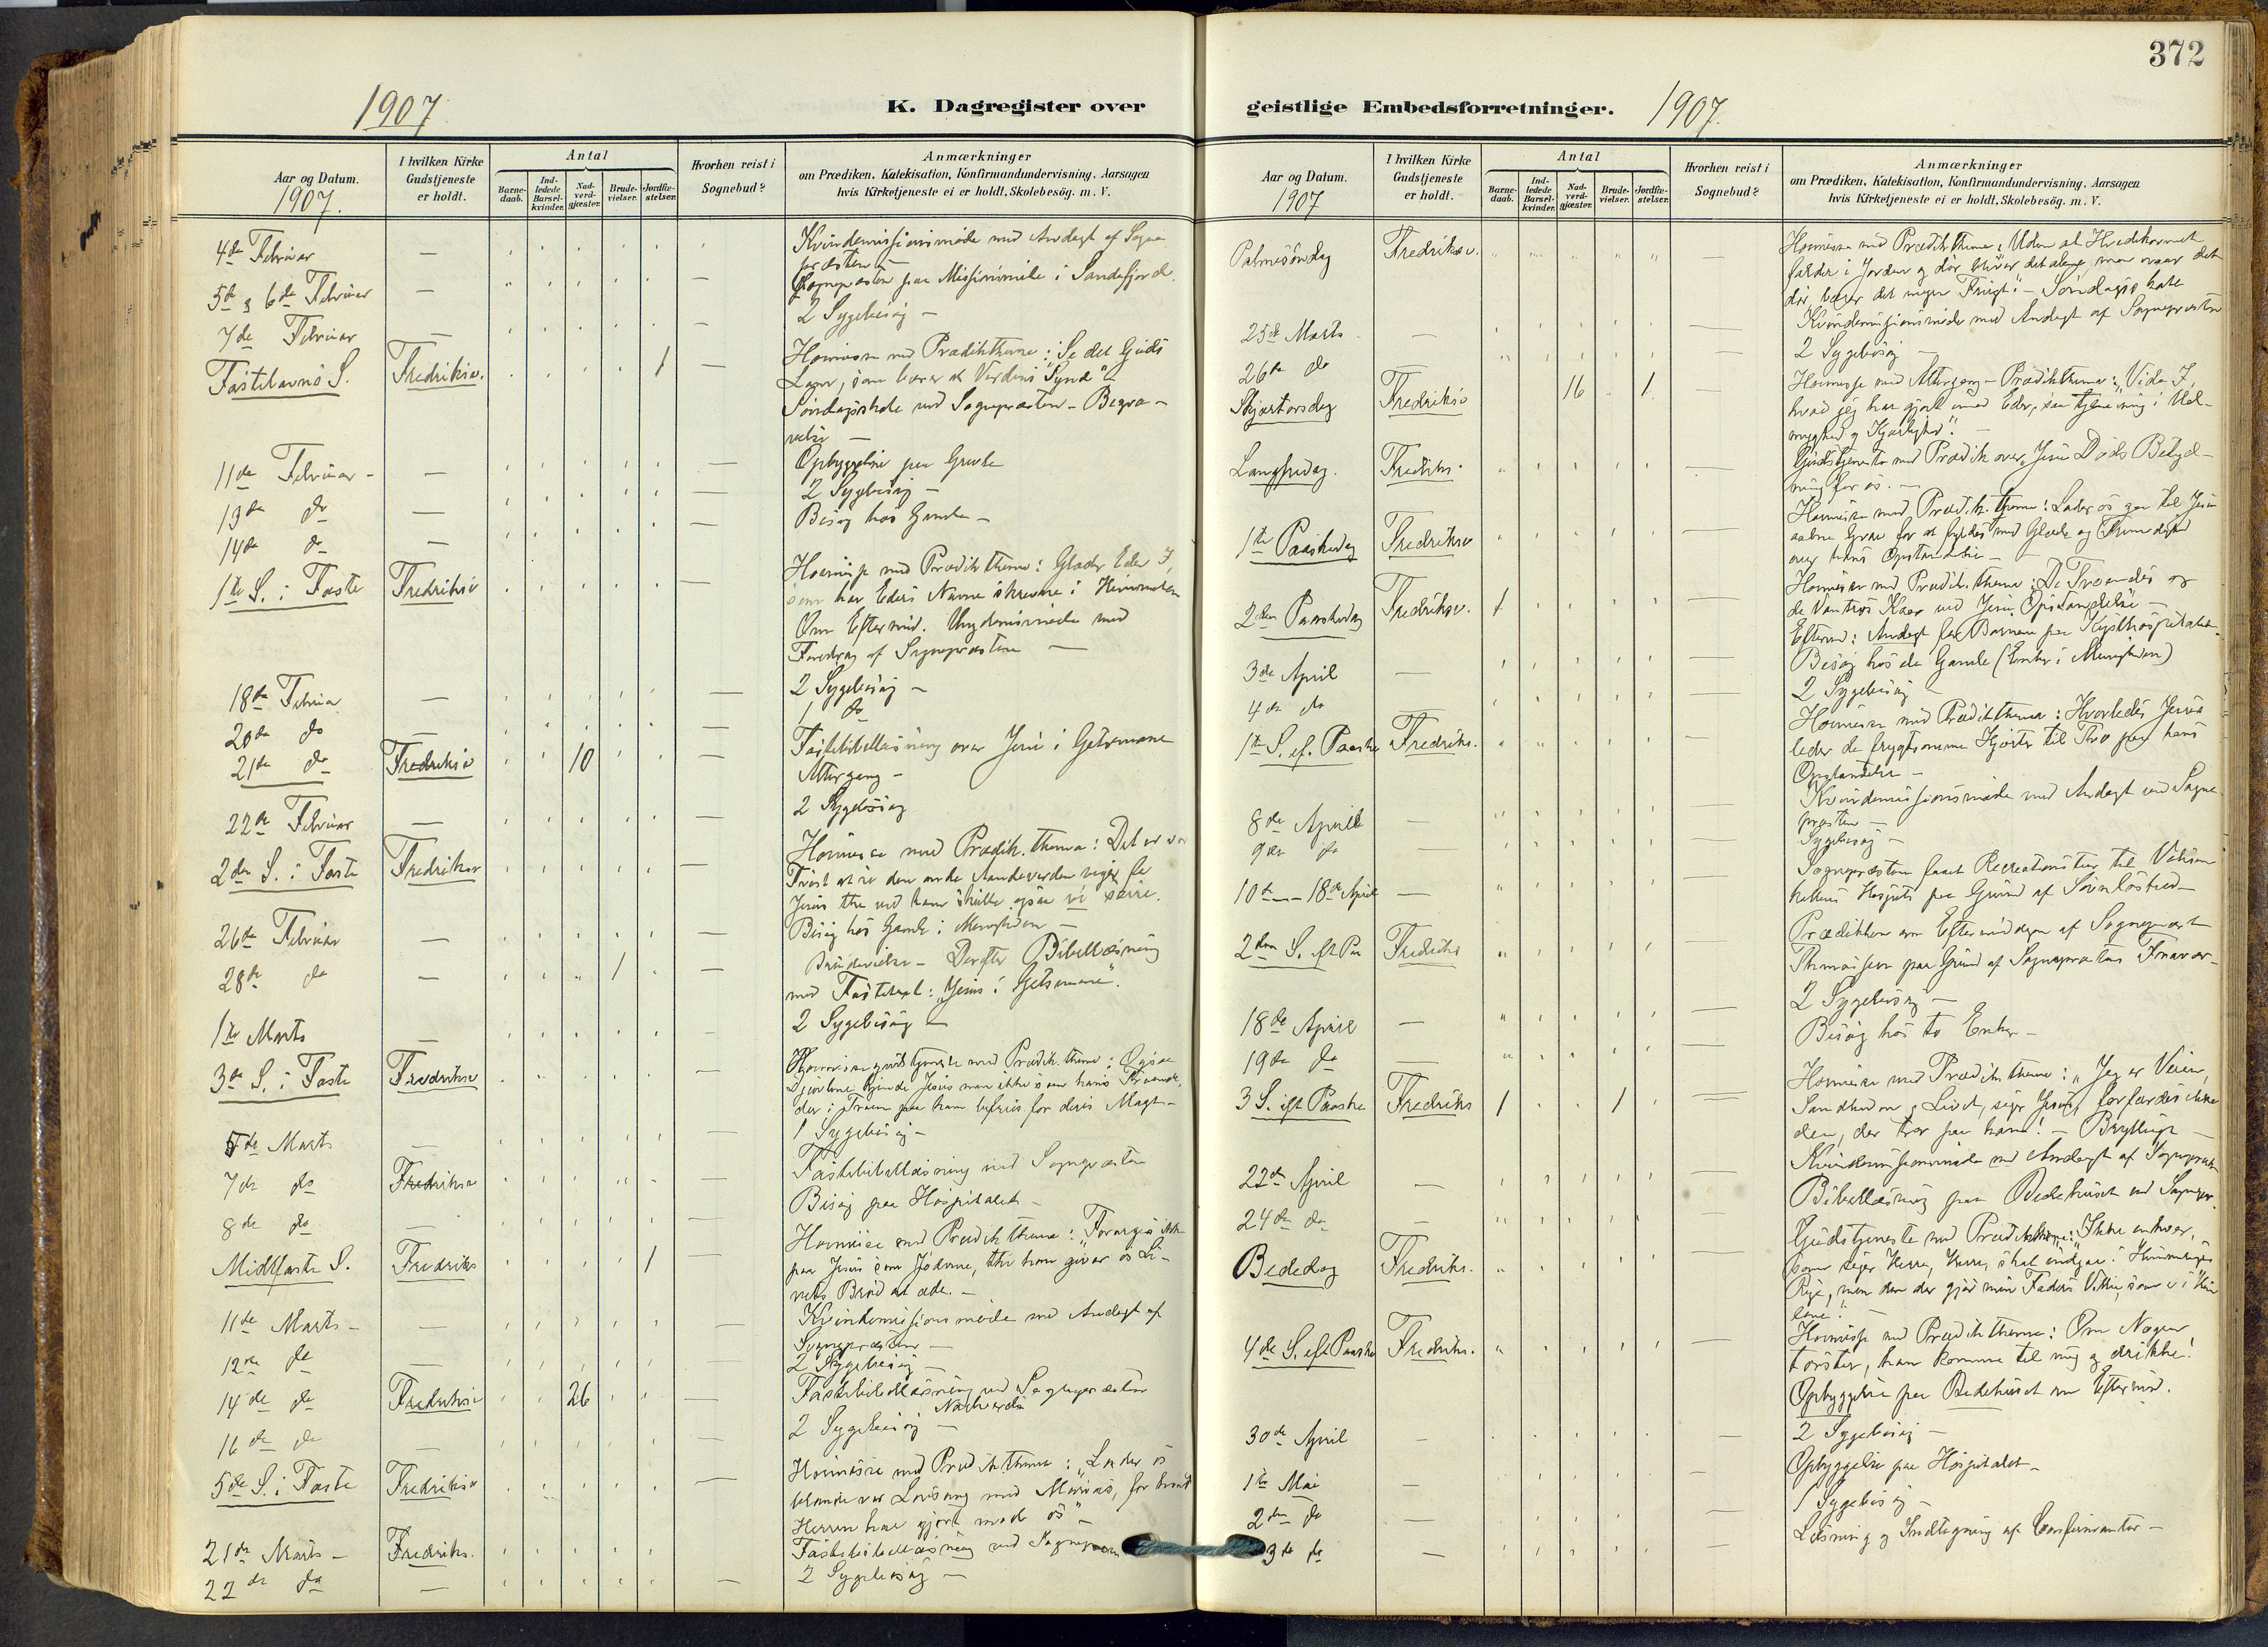 372
1907.
K. Dagregister over
Aar og Datum.
1907.
I hvilken Kirke Gudstjeneste er holdt.
Antal
Barne-daab.
Ind-ledede Barsel-kvinder.
Nad-verd-gjæster.
Brude-vielser.
Jordfæ-stelser.
Hvorhen reist i Sognebud?
Anmærkninger
om Prædiken, Katekisation, Konfirmandundervisning, Aarsagen
hvis Kirketjeneste ei er holdt, Skolebesög. m. V.
4de Februar — Kvindemissionsmøde med Andagt af Sogne-
præsten —
5te & 6te Februar — Sognepræsten paa Missionsmøde i Sandefjord.
7de Februar — 2 Sygebesøg —
Fastelavns S. Fredriksv. 1 — Høimesse med Prædikthema: "Se det Guds
Lam, som bærer al Verdens Synd".
Søndagsskole ved Sognepræsten — Begra-
velse —
11de Februar — Opbyggelse paa
13de do — 2 Sygebesøg —
14de do — Besøg hos Gamle —
1ste S. i Faste Fredriksv Høimesse med Prædikthema: Glæder Eder I,
som har Eders Navne skrevne i Himmelen
Om Eftermid. Ungdomsmøde med
Foredrag af Sognepræsten —
18de Februar — 2 Sygebesøg —
20de do — 1 do
21de do Fredriksv 10 — Fastebibellæsning over Jesus i Getsemane
Altergang —
22de Februar — 2 Sygebesøg
2den S. i Faste Fredriksv — Høimesse med Prædik. thema: Det er vor
Trøst at i den onde Aandeverden siger
Jesus thi ved ham skulle ogsaa vi seire.
26de Februar — Besøg hos Gamle i Menigheden —
28de do — 1 — Brudevielse — Derefter Bibellæsning
med Fastetext: "Jesus i Getsemane".
1ste Marts — 2 Sygebesøg —
3die S. i Faste Fredriksv — Høimessegudstjeneste med Prædik. thema: Ogsaa
Djævlene kjende Jesus men ikke som hans Troende,
der i Troen paa ham befries for deres Magt —
5te Marts — 1 Sygebesøg —
7de do Fredriksv — Fastebibellæsning ved Sognepræsten
8de do — Besøg paa Hospitalet —
Midfaste S. Fredriks 1 — Høimesse med Prædikthema: "Forarges ikke
paa Jesus som Jøderne, thi han giver os Li-
vets Brød at æde. —
11te Marts — Kvindemissionsmøde med Andagt af
Sognepræsten —
12te do — 2 Sygebesøg —
14de do Fredriksv 26 — Fastebibellæsning ved Sognepræsten
Nadverd
16de do — 2 Sygebesøg —
5te S. i Faste Fredriksv — Høimesse med Prædikthema: "Lader os
blande vor Lovsang med Marias, for hvad
Herren har gjort mod os" —
21de Marts — Fredriks. Fastebibellæsning ved Sognepræsten
22de do — 2 Sygebesøg —
geistlige Embedsforretninger.
1907.
Aar og Datum.
1907
I hvilken Kirke Gudstjeneste er holdt.
Antal
Barne-daab.
Ind-ledede Barsel-kvinder.
Nad-verd-gjæster.
Brude-vielser.
Jordfæ-stelser.
Hvorhen reist i Sognebud?
Anmærkninger
om Prædiken, Katekisation, Konfirmandundervisning, Aarsagen
hvis Kirketjeneste ei er holdt, Skolebesög. m. V.
Palmesøndag Fredriksv. — Høimesse med Prædikthema: Uden at Hvedekornet
falder i Jorden og dør bliver det alene, men naar det
dør, bærer det megen Frugt! — Søndagsskole
25de Marts — Kvindemissionsmøde med Andagt af Sognepræsten
26de do — 2 Sygebesøg —
Skjærtorsdag Fredriksv 16 1 — Høimesse med Altergang — Prædikthema: "Vide I,
hvad jeg har gjort imod Eder,
myghed og Kjærlighed" —
Langfredag. Fredriks. — Gudstjeneste med Prædik over Jesu Døds Betyd-
ning for os. —
1ste Paaskedag Fredriksv — Høimesse med Prædik. thema: Lader os gaa til Jesu
aabne Grav for at fyldes med Glæde og Frimodighed
over hans Opstandelse —
2den Paaskedag Fredriksv. 1 — Høimesse med Prædik. thema: De Troendes og
de Vantros Kaar ved Jesu Opstandelse —
Efterm: Andagt for Børnene paa Kysthospitalet.
3die April — Besøg hos de Gamle (Enker i Menigheden)
4de do — 2 Sygebesøg —
1ste S. ef. Paaske Fredriks. — Høimesse med Prædikthema: Hvorledes Jesus
leder de frygtsomme Hjerter til Tro paa hans
Opstandelse —
8de April — Kvindemissionsmøde med Andagt ved Sogne-
præsten —
9de do — Sygebesøg —
10de — 18de April — Sognepræsten faaet Recreationstur til
paa Grund af Søvnløshed —
2den S. eft Paa Fredriks — Prædikken om Eftermiddagen af Sognepræst
Thomassen paa Grund af Sognepræstens Fravær —
18de April — 2 Sygebesøg —
19de do — Besøg hos to Enker —
3 S. eft Paaske Fredriks 1 1 — Høimesse med Prædikthema: "Jeg er Veien,
Sandheden og Livet, siger Jesus, forfærdes ikke
den, der tror paa ham! — Bryllup —
22de April — Kvindemissionsmøde med Andagt af Sognepræsten
24de do — Bibellæsning paa Bedehuset ved Sognepr.
Bededag Fredriks. Gudstjeneste med Prædikthema: "Ikke enhver,
som siger Herre, Herre, skal indgaa i Himmeriges
Rige, men den der gjør min Faders Villie, som er i Him-
lene". —
4de S. eft Paaske Fredriks. — Høimesse med Prædikthema: Om Nogen
tørster, han komme til mig og drikke!
Opbyggelse paa Bedehuset om Eftermid.
30de April — 2 Sygebesøg —
1ste Mai — Opbyggelse paa Hospitalet —
2den do — 1 Sygebesøg —
3die do — Læsning og Indtegning af Confirmanter —